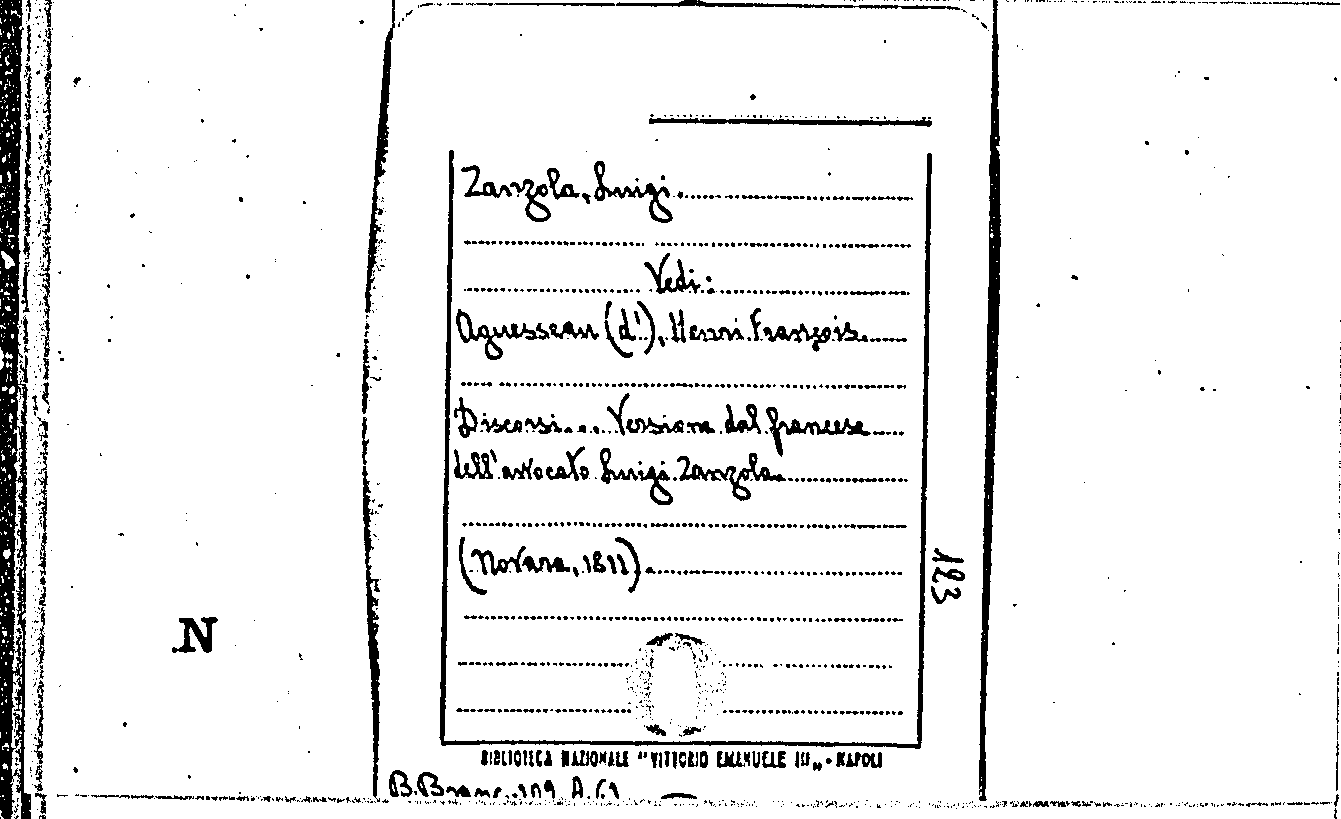 Zanzola, Luigi.
Vedi:
Aguesseau (d'), Henri François.
Discorsi... Versione dal francese
dell'avvocato Luigi Zanzola.
(Novara, 1811).
123
N
BIBLIOTECA NAZIONALE "VITTORIO EMANUELE III„ - NAPOLI
B. Branc. 109. A.